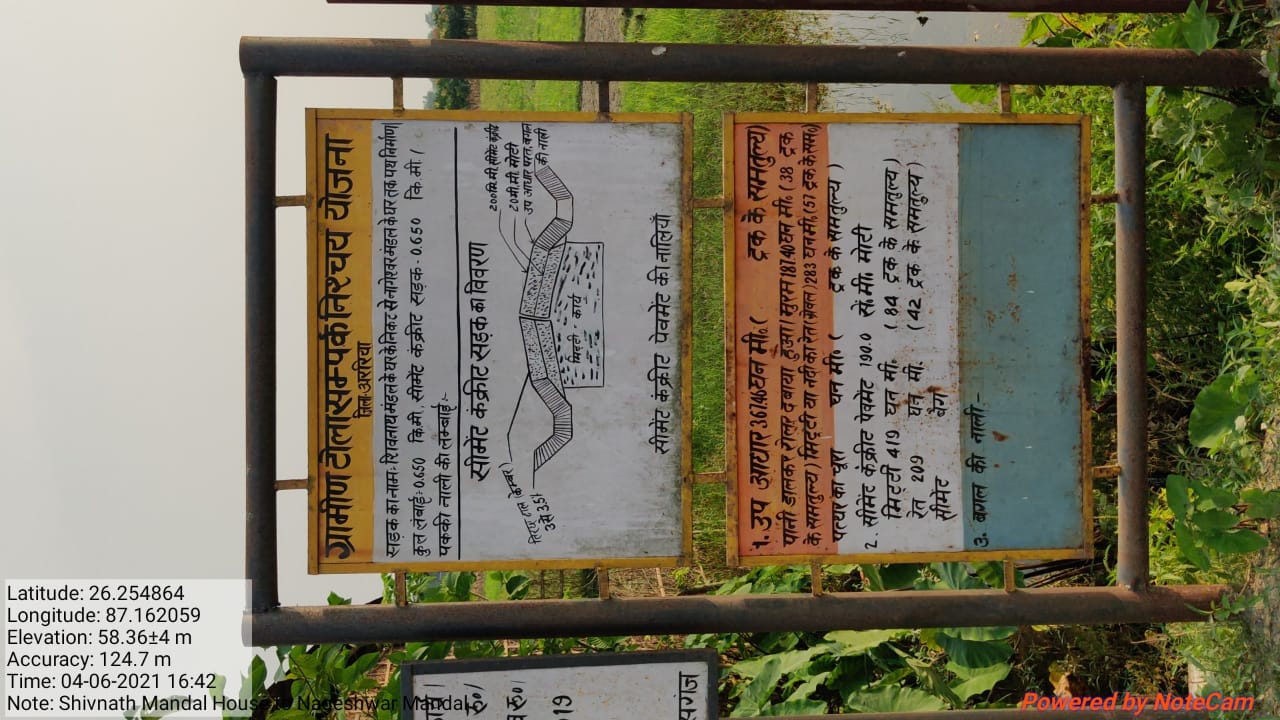 ग्रामीण टोला सम्पर्क निश्चय योजना
जिला-अररिया
सड़क का नाम:- शिवनाथ मंडल के घर के निकट से नागेश्वर मंडल के घर तक पथ निर्माण
कुल लंबाई:- 0.650 कि.मी. सीमेंट कंक्रीट सड़क - 0.650 कि.मी. /
पक्की नाली की लम्बाई:-
सीमेंट कंक्रीट सड़क का विवरण
200 मि.मी. सीमेंट कंक्रीट
20 मी.मी. मोटी
उप आधार परत, बगल
की नाली
मिट्टी कार्य
सीमेंट कंक्रीट पेवमेंट की नालियाँ
1. उप आधार 367.46 घन मी. ( ट्रक के समतुल्य)
पानी डालकर रोलर दबाया हुआ। मुरम 187.40 घन मी. ( 38 ट्रक
के समतुल्य) मिट्टी या नदी का रेत (ग्रेवल) 283 घन मी. (57 ट्रक के सम0)
पत्थर का चूरा घन मी. ( ट्रक के समतुल्य )
2. सीमेंट कंक्रीट पेवमेंट 190.0 से.मी. मोटी
मिटटी 419 घन मी. ( 84 ट्रक के समतुल्य)
रेत 209 घन मी. ( 42 ट्रक के समतुल्य )
सीमेंट
3. बगल की नाली:-
019
Latitude: 26.254864
Longitude: 87.162059
Elevation: 58.36±4 m
Accuracy: 124.7 m
Time: 04-06-2021 16:42
Note: Shivnath Mandal House to Nageshwar Mandal
Powered by NoteCam